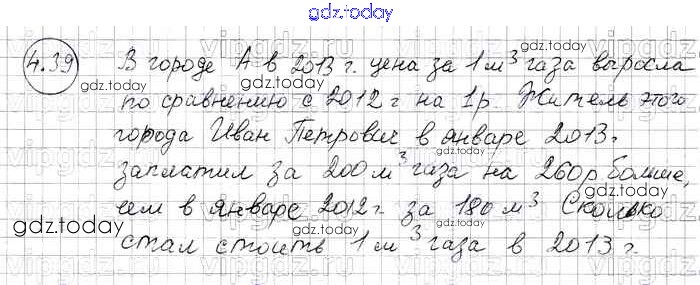 gdz.today
4.39 В городе А в 2013 г. цена за 1 м³ газа выросла
gdz.today
gdz.today
по сравнению с 2012 г на 1р. Житель этого
города Иван Петрович в январе 2013г.
заплатил за 200 м³ газа на 260р больше,
gdz.today
gdz.today
чем в январе 2012г. за 180 м³ Сколько
gdz.today
стал стоить 1 м³ газа в 2013 г.
gdz.today